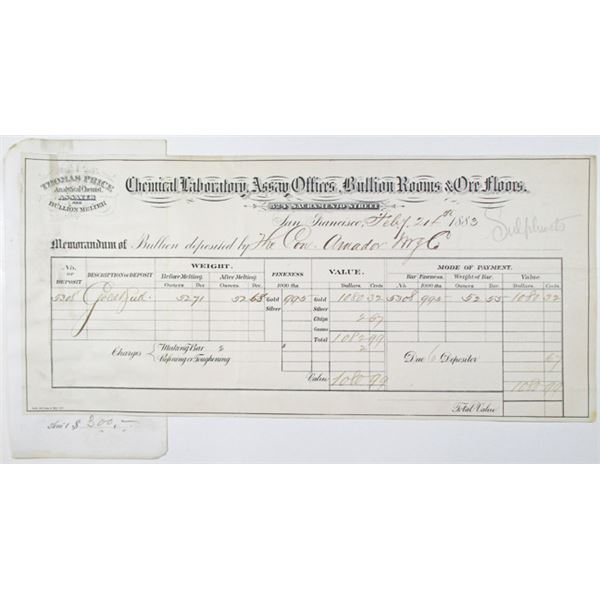 THOMAS PRICE
Analytical Chemist,
ASSAYER
AND
BULLION MELTER
Chemical Laboratory, Assay Offices, Bullion Rooms & Ore Floors.
524 SACRAMENTO STREET
San Francisco, Feby 21st 1883
Sulphurets
Memorandum of Bullion deposited by The Con. Amador
No. OF DEPOSIT DESCRIPTION OF DEPOSIT WEIGHT. FINENESS VALUE. MODE OF PAYMENT.
Before Melting After Melting 1000 ths Dollars Cents Bar Fineness. Weight of Bar. Value
Ounces Dec Ounces Dec. No. 1000 ths Ounces Dec. Dollars Cents
5308 Gold 52 71 52 68 Gold 992 Gold 1080 32 5308 992 52 55 1080 32
Silver Silver
Chips 2 67
Grains
Total 1082 99
Charges Making Bar 2 $ 2 Due to Depositor 67
Refining or Toughening
Value 1080 99 1080 99
Total Value
Am't $ 300.